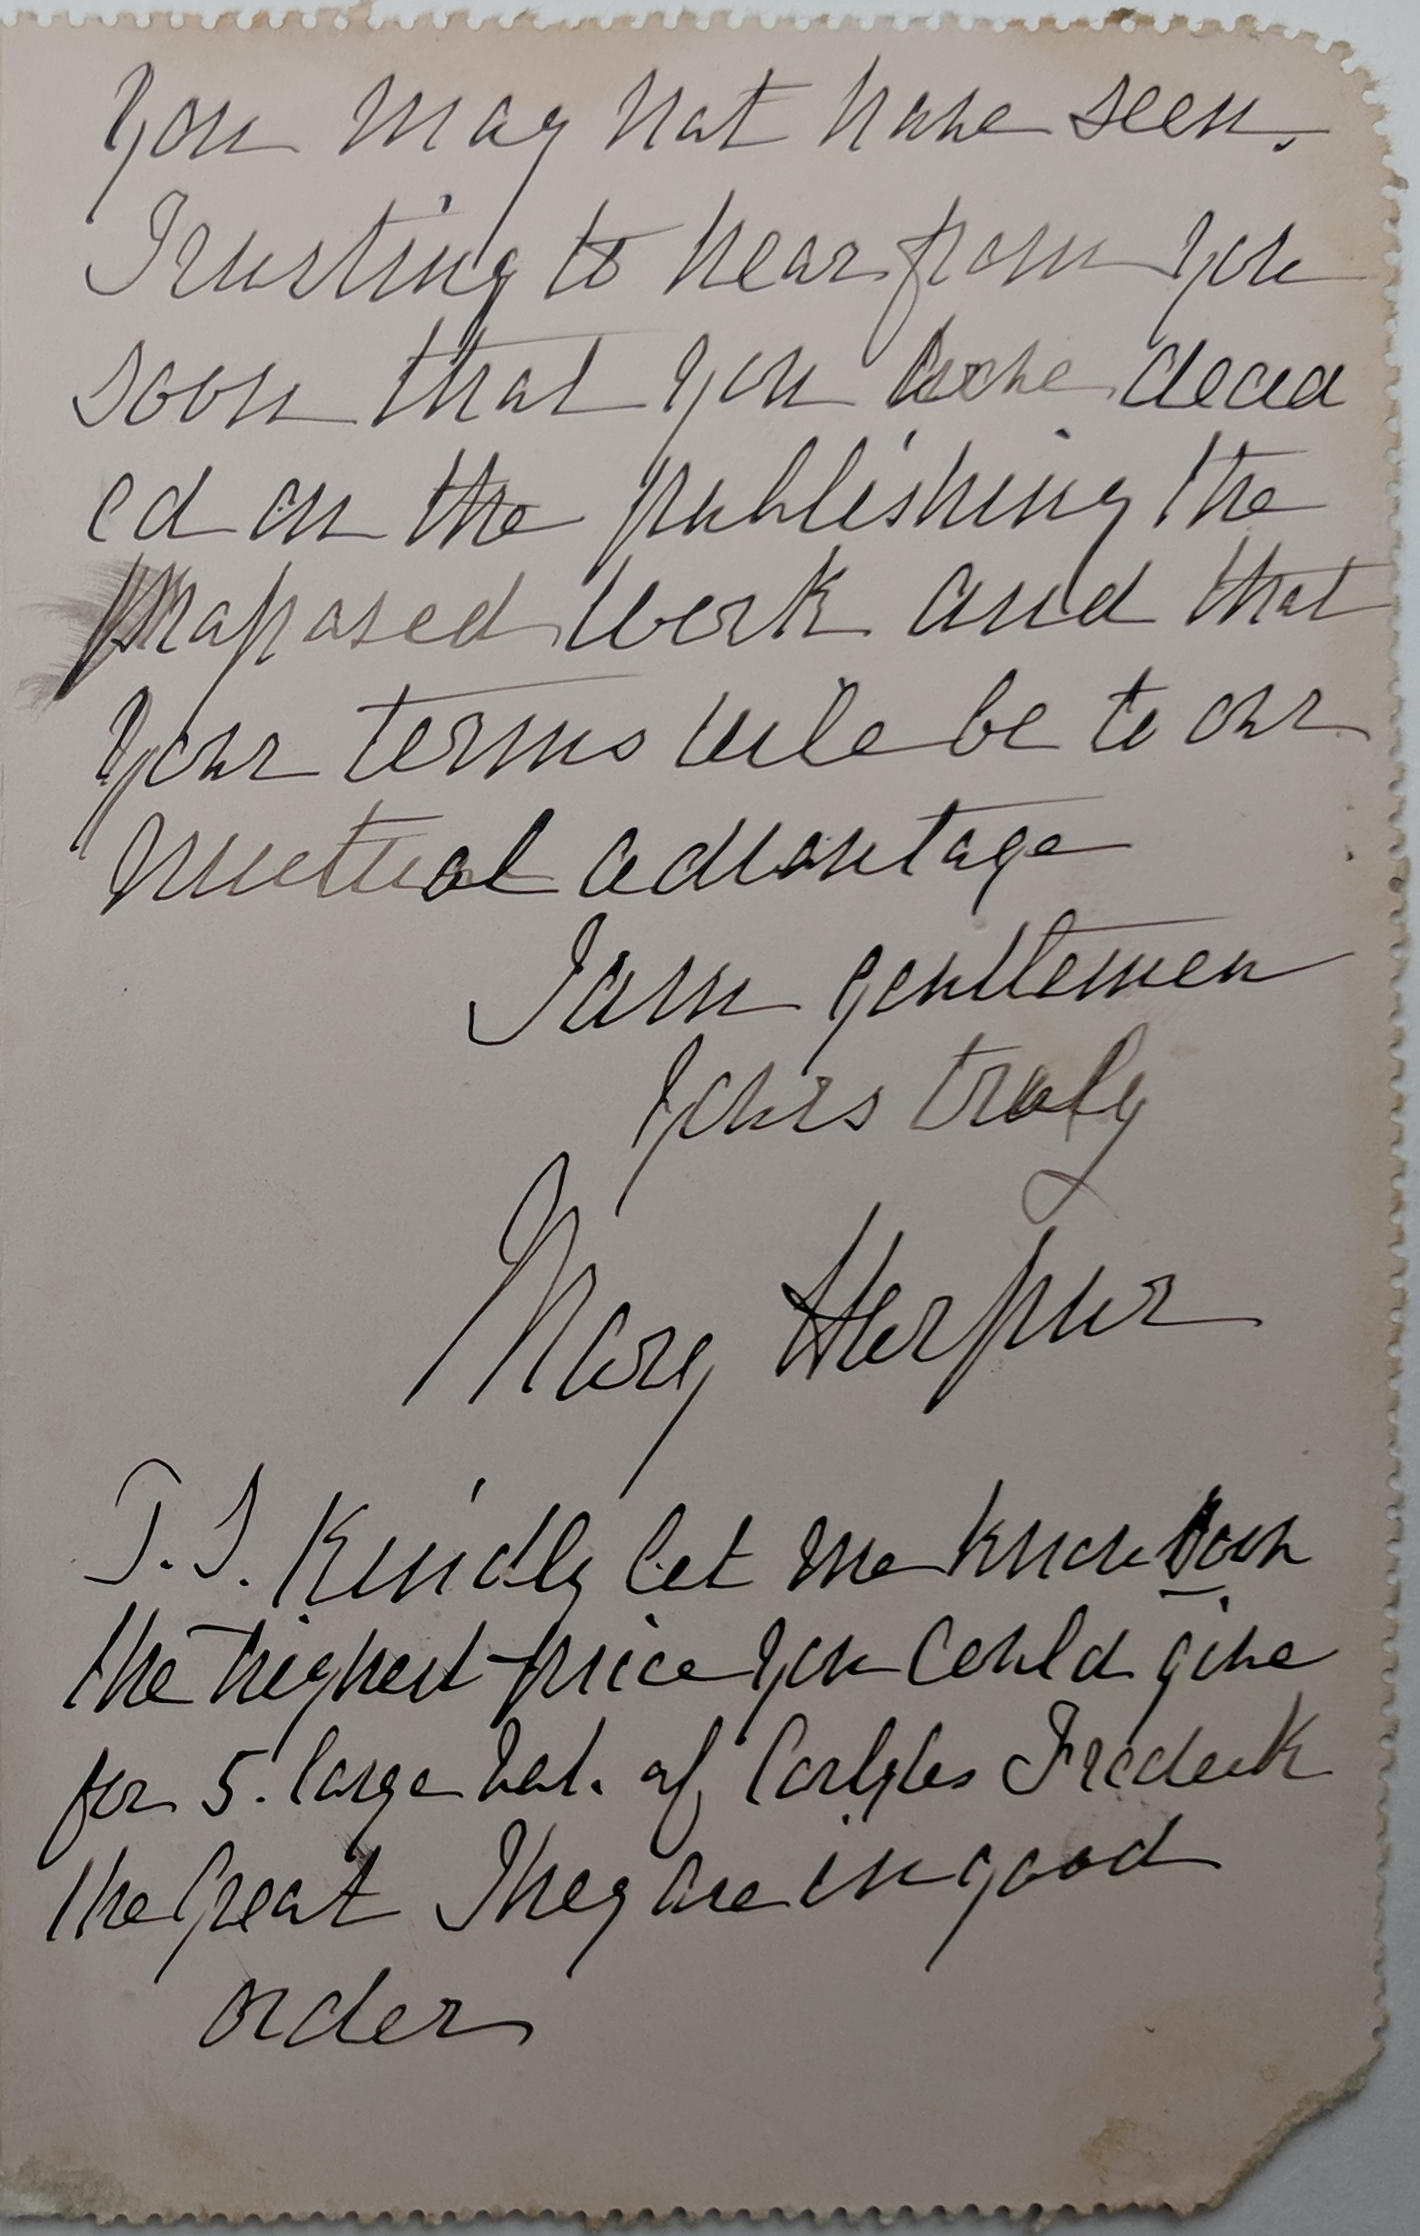 You may not have seen.
Trusting to hear from you
soon that you have decid
ed on the publishing the
proposed work and that
your terms will be to our
mutual advantage
I am gentlemen
Yours truly
Mary Herpur
P.S. Kindly let me know soon
the highest price you could give
for 5. large vol. of Carlyles Frederick
the Great They are in good
order